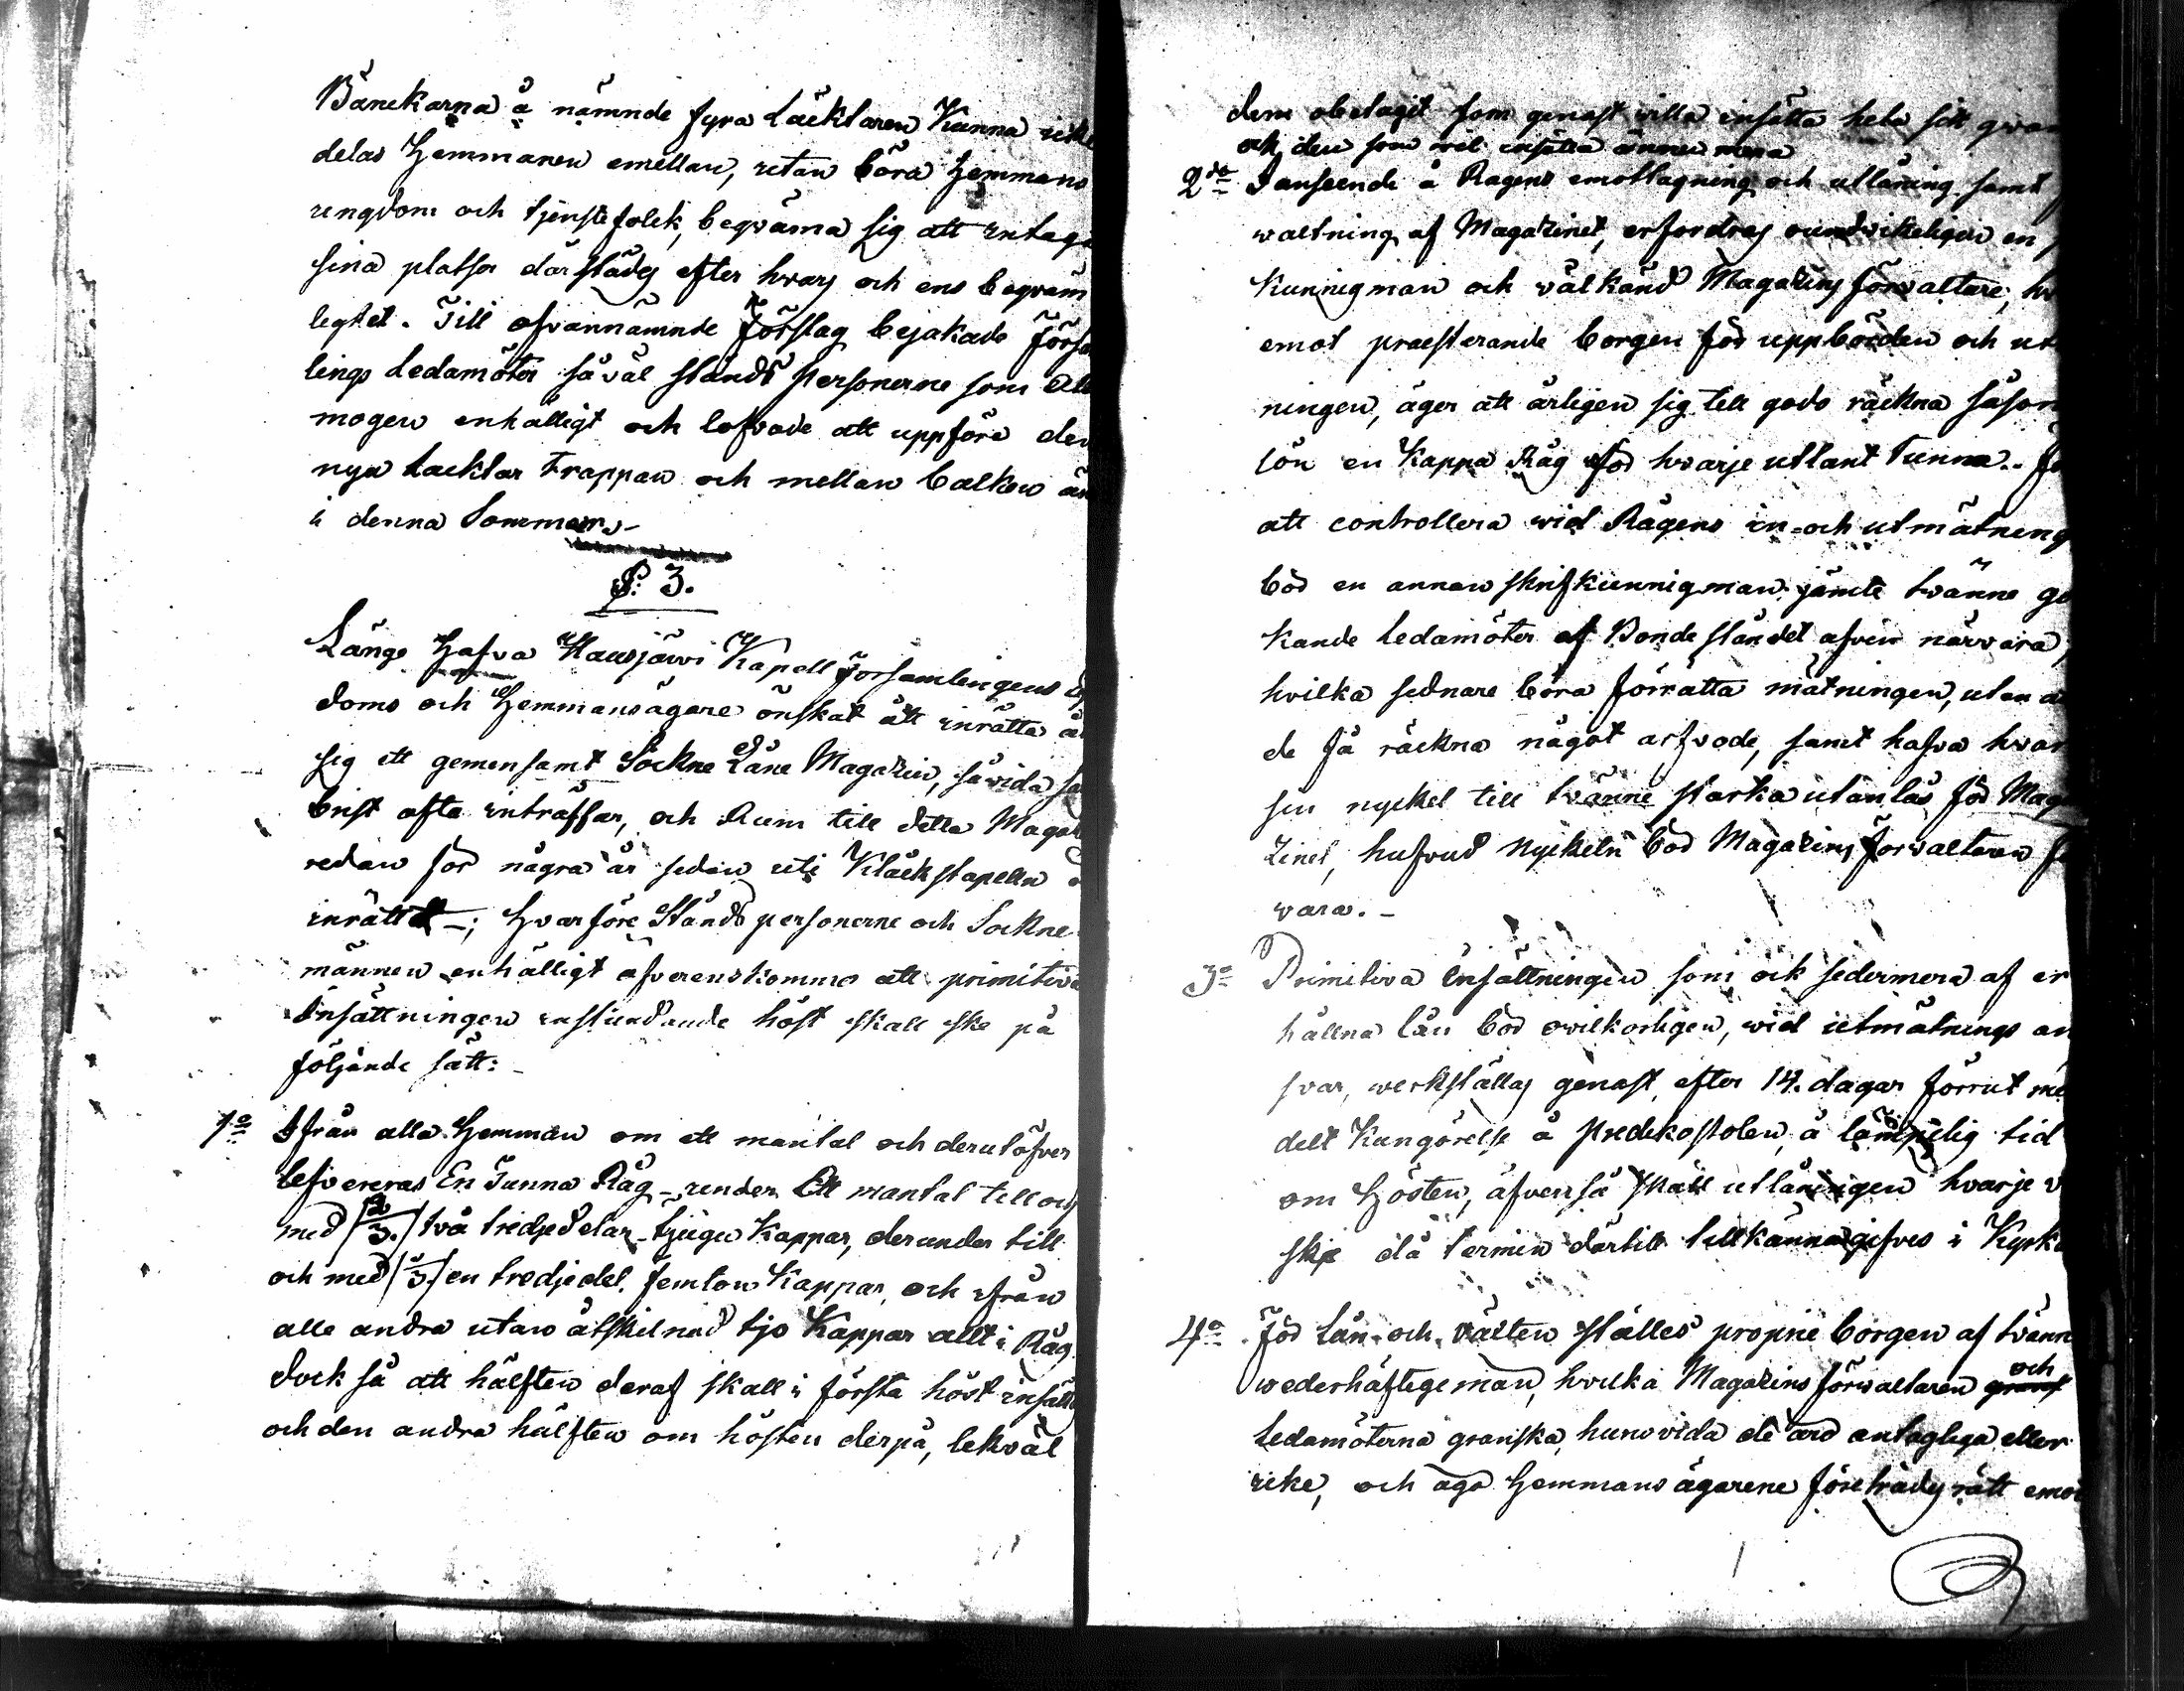 Bänckarna å nämnde fyra Läcktaren Kunna icke
delas Hemmanen emellan, utan böra Hemmans
ungdom och tjenstefolck, beqväma sig att intaga
sina platser därstädes efter hvars och ens beqväm
leghet. Till ofvannämnde förslag bejakade Försa
lings Ledamöter såväl Stånds personerne som All
mogen enhälligt och lofvade att uppföra den
nya Lacktar trappan och mellan balken än
i denna Sommar.-
§. 3.
Länge Hafva Hausjärvi Kapell Församlingens
doms och Hemmansägare önskat att inrätta åt
sig ett gemensamt Sockne Låne Magazin, såvida
brist ofta inträffar, och Rum till detta Magaz
redan för några år sedan uti Kläckstapeln
inrättat-; Hvarföre Stånds personerne och Sockne
männen enhälligt öfverenskommo att primitiva
Insättningen instundande höst skall ske på
följande sätt:-
1o Ifrån alla Hemman om ett mantal och derutöfver
lefvereras En Tunna Råg - under Ett mantal till och
med /2/3./ två tredjedelar - tjugu Kappar, derunder till
och med /1/3/ en tredjedel. femton Kappar, och ifrån
alla andra utan åtskilnad tjo Kappar allt i Råg
dock så att hälften deraf skall i första höst insättas
och den andra hälften om hösten derpå, lekväl
dem obetagit som genast villa insätta hela sitt qvan
och den som vil insätta ännu mera
2do I anseende å Rågens emottagning och utlåning samt
valtning af Magazinet, erfordras oundvikeligen en
Kunnig man och välkänd Magazins förvaltare, hv
emot praesterande borgen för uppbörden och ut
ningen, äger att årligen sig till godo räckna såsom
lön en Kappa Råg för hvarje utlänt Tunna..
att controllera vid Rågens in- och utmätning
bör en annan skrifkunnig man jämte tvänne go
kände Ledamöter af Bonde ståndet äfven närvara,
hvilka sednare böra förrätta mätningen, utan a
de få räckna något arfvode, samt hafva hvar
sin nyckel till tvänne starka utanlås för Maga
zinet, hufvud nyckeln bör Magazins förvaltaren
vara.-
3o Primitiva Insättningen som ock sedermera af er
hållna lån bör ovilkorligen, vid utmätnings an
svar, verkställas genast, efter 14. dagar förrut me
delt Kungörelse å predikostolen, å lämpelig tid
om Hösten, äfvenså skall utlåningen hvarje v
ske då termin därtill tillkännagifves i Kyrka
4o För Lån och växten ställes proprie borgen af tvänne
vederhäftige män, hvilka Magazins förvaltaren och
Ledamöterna granska, hunovida de äro antagliga eller
icke, och äga Hemmans ägarene företrädes rätt emot